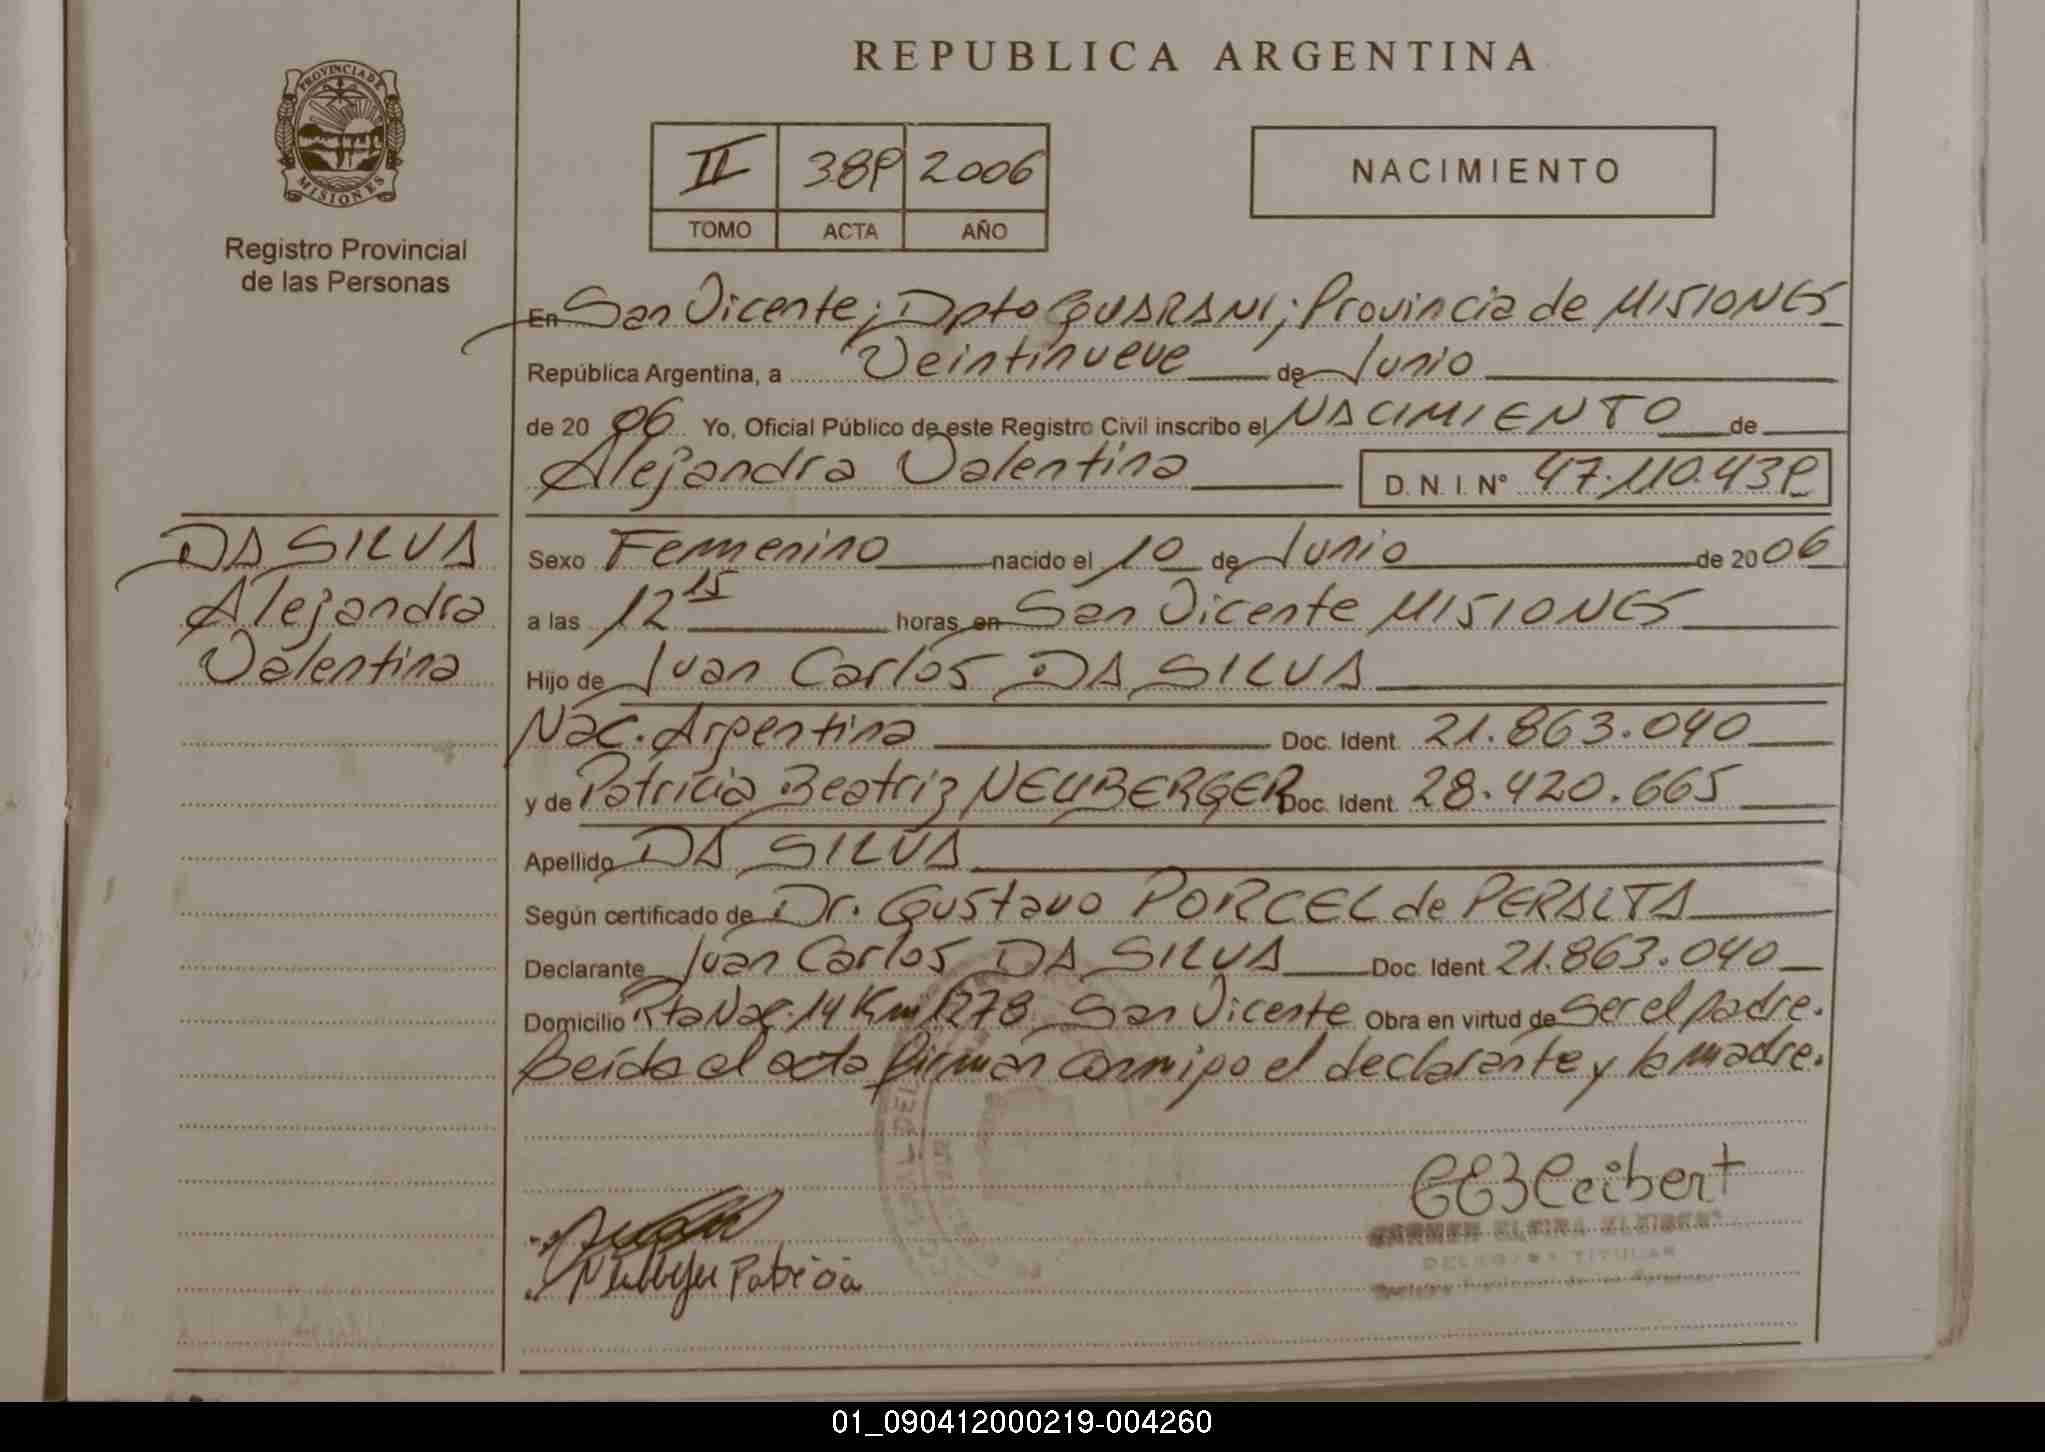 REPUBLICA ARGENTINA
PROVINCIA DE MISIONES
Registro Provincial
de las Personas
II 389 2006
TOMO ACTA AÑO
NACIMIENTO
En San Vicente; Dpto GUARANI; Provincia de MISIONES
República Argentina, a Veintinueve de Junio
de 2006 Yo, Oficial Público de este Registro Civil inscribo el NACIMIENTO de
Alejandra Valentina D. N. I. N° 47.110.439
DA SILVA
Alejandra
Valentina
Sexo Femenino nacido el 10 de Junio de 2006
a las 12 15 horas en San Vicente MISIONES
Hijo de Juan Carlos DA SILVA
Nac. Argentina Doc. Ident. 21.863.040
y de Patricia Beatriz NEUBERGER Doc. Ident. 28.420.665
Apellido DA SILVA
Según certificado de Dr. Gustavo PORCEL de PERALTA
Declarante Juan Carlos DA SILVA Doc. Ident. 21.863.040
Domicilio Rta Nac. 14 Km 1278 San Vicente Obra en virtud de Ser el padre.
Leída el acta firman conmigo el declarante y la madre.
Patricia
CARMEN ELVIRA
DELEGADA TITULAR
Registro Provincial de las Personas
01_090412000219-004260